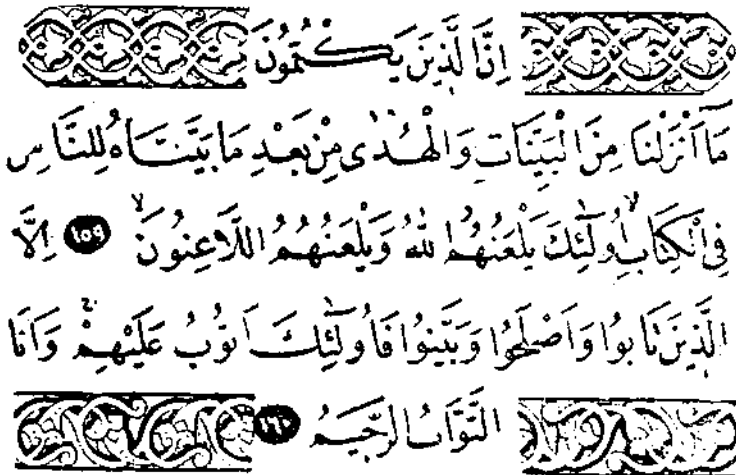 اِنَّ الَّذ۪ينَ يَكْتُمُونَ
مَٓا اَنْزَلْنَا مِنَ الْبَيِّنَاتِ وَالْهُدٰى مِنْ بَعْدِ مَا بَيَّنَّاهُ لِلنَّاسِ
فِى الْكِتَابِۙ اُولٰٓئِكَ يَلْعَنُهُمُ اللّٰهُ وَيَلْعَنُهُمُ اللَّاعِنُونَۙ ﴿١٥٩﴾ اِلَّا
الَّذ۪ينَ تَابُوا وَاَصْلَحُوا وَبَيَّنُوا فَاُولٰٓئِكَ اَتُوبُ عَلَيْهِمْۚ وَاَنَا
التَّوَّابُ الرَّح۪يمُ ﴿١٦٠﴾